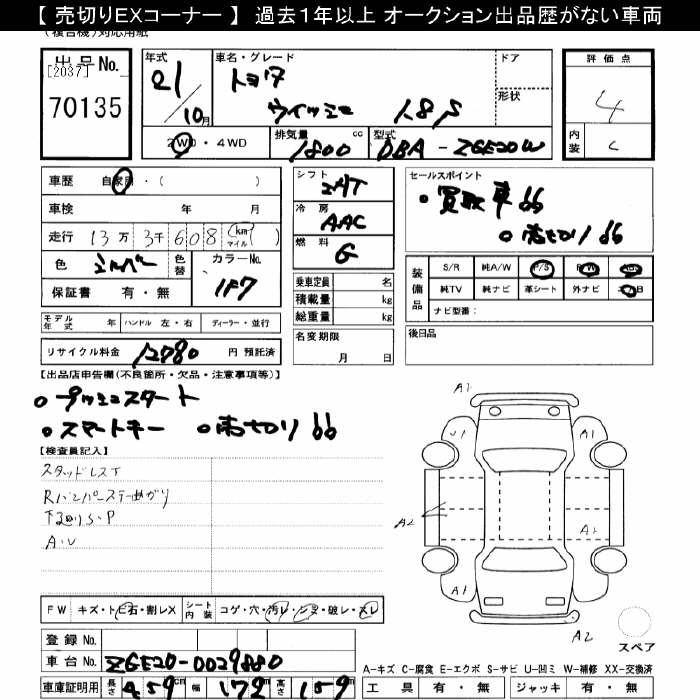 【 売切りEXコーナー 】 過去1年以上 オークション出品歴がない車両
(複合機)対応用紙
出品No.
[2037]
70135
年式
21
10月
車名・グレード
トヨタ
ウイッシュ 1.8S
ドア
形状
評価点
4
内装
C
2WD・4WD
排気量
1800 cc
型式
DBA-ZGE20W
車歴 自家用・( )
車検 年 月
走行 13万3千608 (km マイル)
色 シルバー
色替
カラーNo.
1F7
保証書 有・無
シフト
2AT
冷房
AAC
燃料
G
乗車定員 名
積載量 kg
総重量 kg
セールスポイント
買取車!!
売切り!!
装備品
S/R 純A/W P/S P/W ABS
純TV 純ナビ 革シート 外ナビ エアB
ナビ型番:
モデル年式 年 ハンドル 左・右 ディーラー・並行
リサイクル料金 12780 円 預託済
名変期限
月 日
後日品
【出品店申告欄(不良箇所・欠品・注意事項等)】
プッシュスタート
スマートキー 売切り!!
【検査員記入】
スタッドレスT
Rバンパーステー曲がり
下回りS・P
A・U
A1
U1
A1
A2
A1
A1
A1
A2
スペア
FW キズ・トビ石・割レX
シート内装 コゲ・穴・汚レ・シミ・破レ・スレ
登録No.
車台No. ZGE20-0029880
車庫証明用 長さ 459cm 幅 172cm 高さ 159cm
A-キズ C-腐食 E-エクボ S-サビ U-凹ミ W-補修 XX-交換済
工具 有・無 ジャッキ 有・無